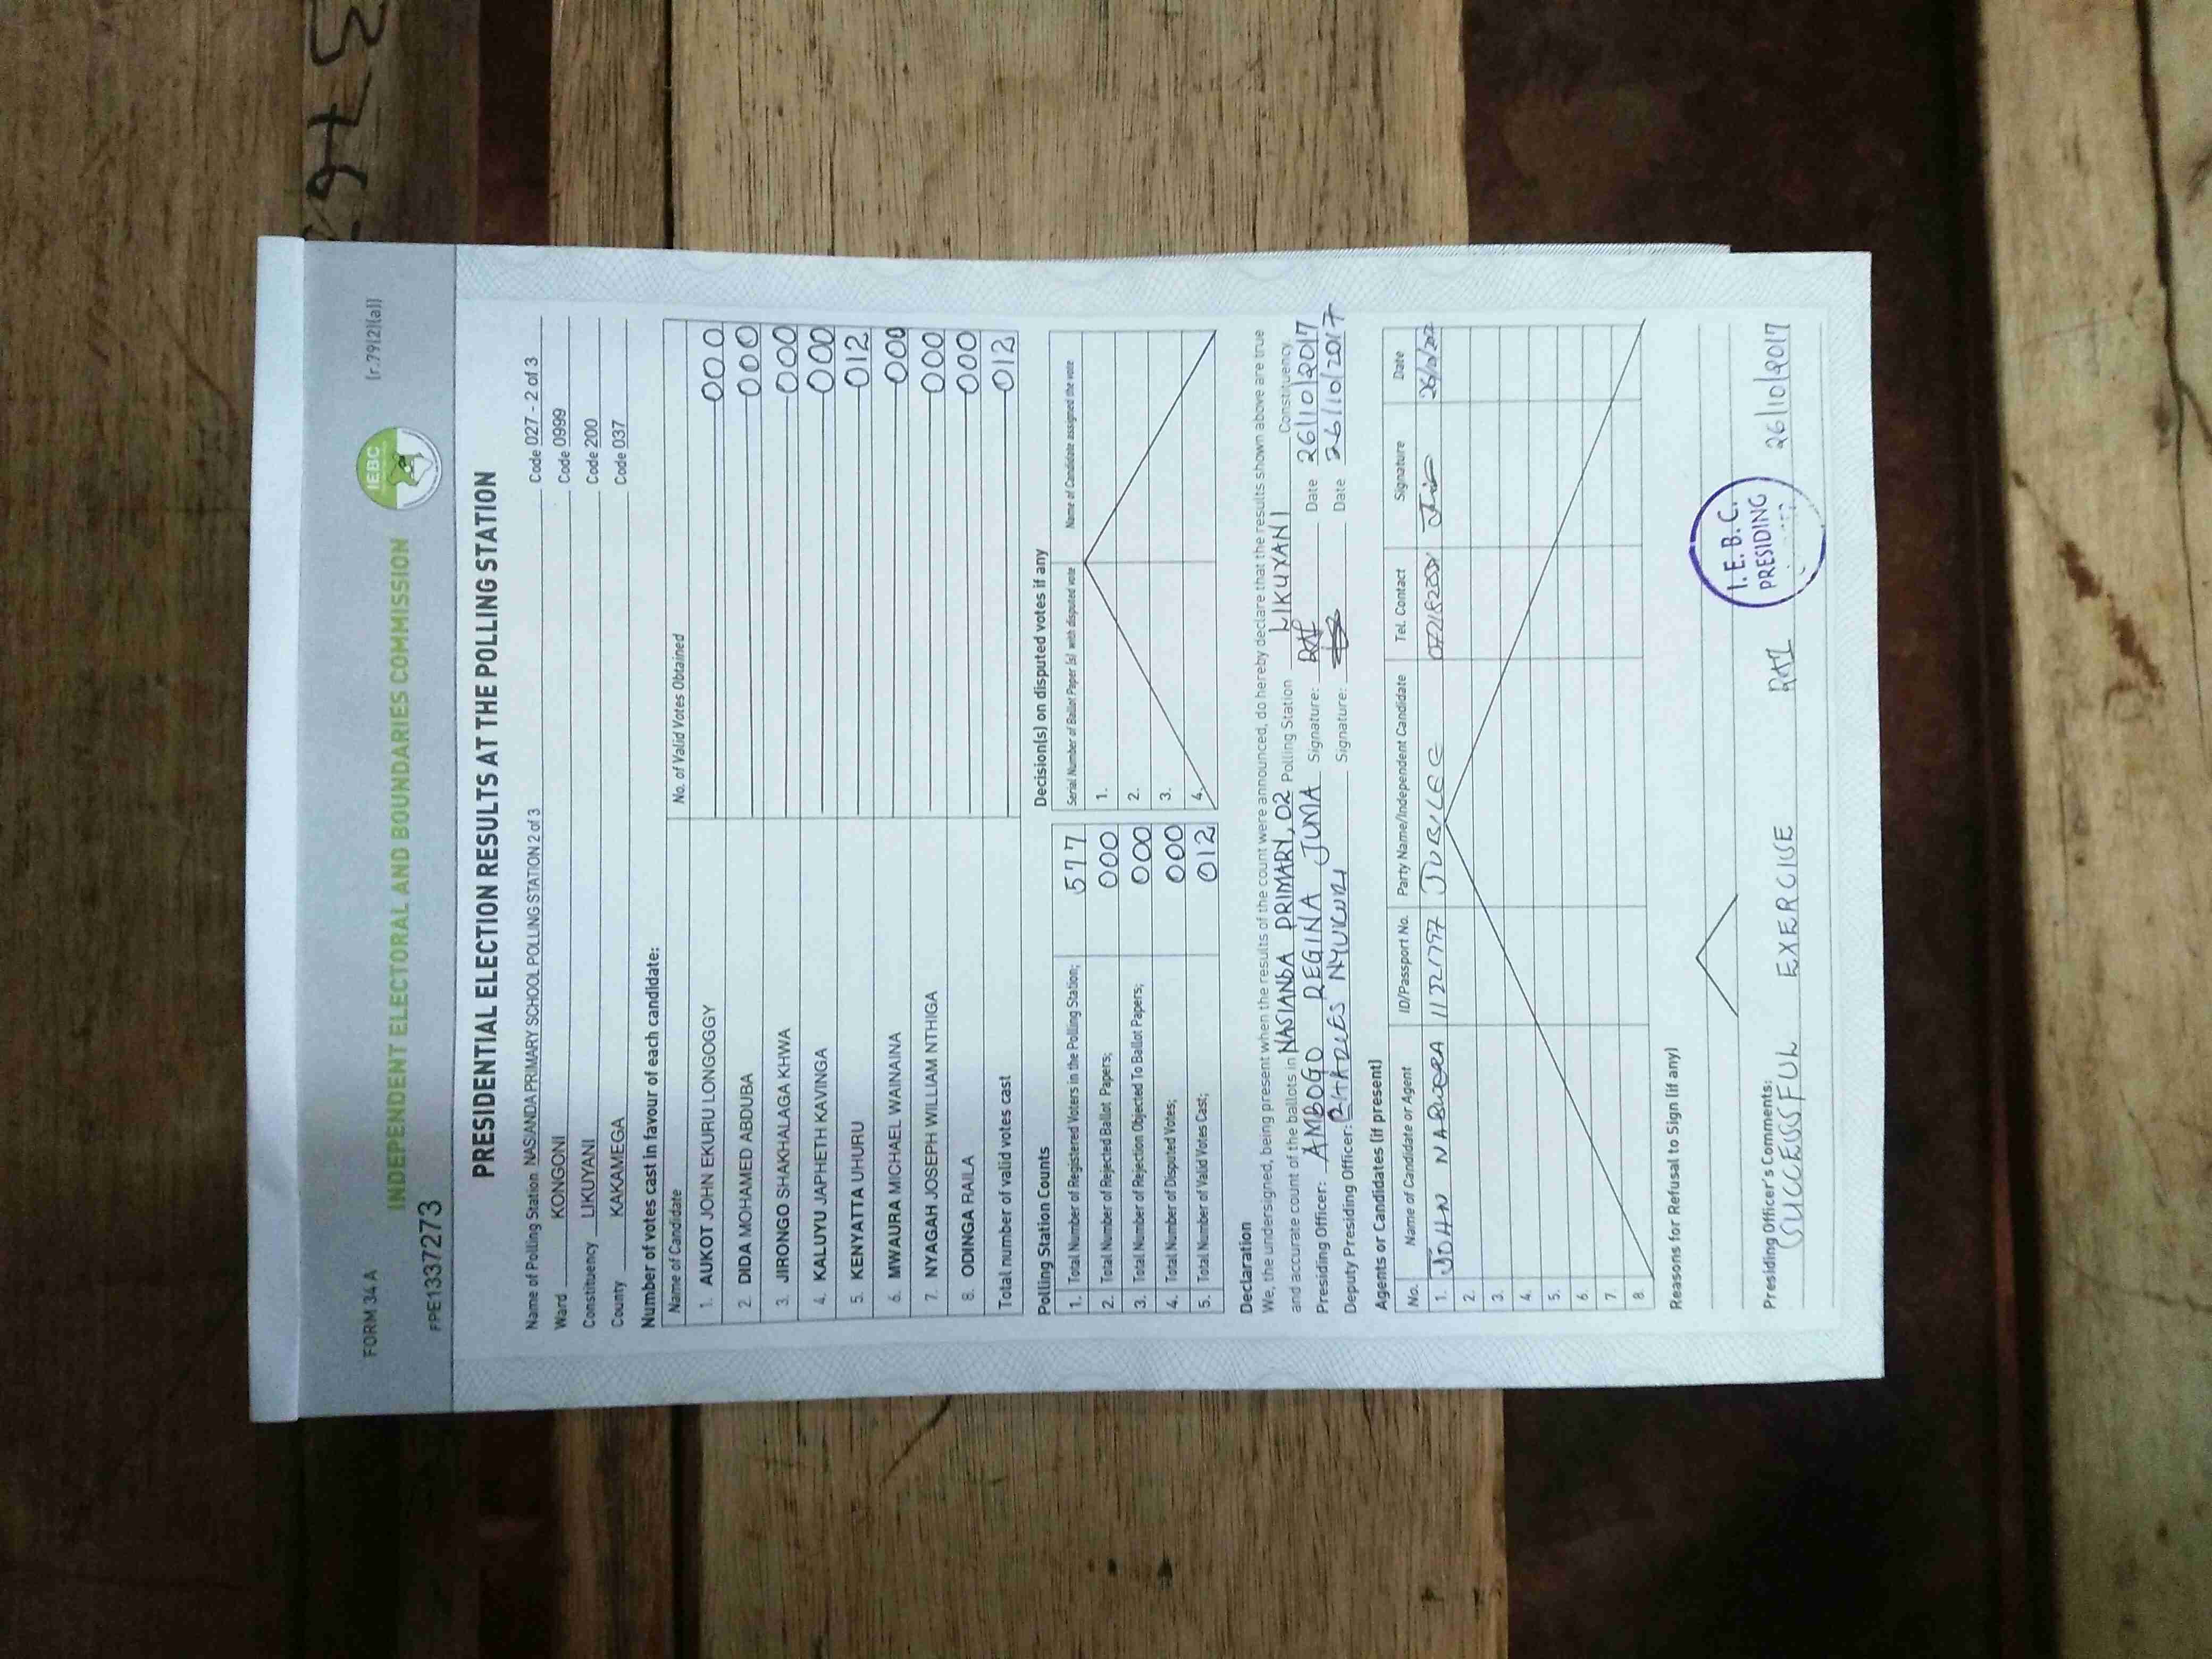 FORM 34 A
(r.79(2)(a))
INDEPENDENT ELECTORAL AND BOUNDARIES COMMISSION
IEBC
FPE1337273
PRESIDENTIAL ELECTION RESULTS AT THE POLLING STATION
Name of Polling Station NASIANDA PRIMARY SCHOOL POLLING STATION 2 of 3 Code 027 - 2 of 3
Ward KONGONI Code 0999
Constituency LIKUYANI Code 200
County KAKAMEGA Code 037
Number of votes cast in favour of each candidate:
Name of Candidate No. of Valid Votes Obtained
1. AUKOT JOHN EKURU LONGOGGY 000
2. DIDA MOHAMED ABDUBA 000
3. JIRONGO SHAKHALAGA KHWA 000
4. KALUYU JAPHETH KAVINGA 000
5. KENYATTA UHURU 012
6. MWAURA MICHAEL WAINAINA 000
7. NYAGAH JOSEPH WILLIAM NTHIGA 000
8. ODINGA RAILA 000
Total number of valid votes cast 012
Polling Station Counts
1. Total Number of Registered Voters in the Polling Station; 577
2. Total Number of Rejected Ballot Papers; 000
3. Total Number of Rejection Objected To Ballot Papers; 000
4. Total Number of Disputed Votes; 000
5. Total Number of Valid Votes Cast; 012
Decision(s) on disputed votes if any
Serial Number of Ballot Paper (s) with disputed vote Name of Candidate assigned the vote
1.
2.
3.
4.
Declaration
We, the undersigned, being present when the results of the count were announced, do hereby declare that the results shown above are true
and accurate count of the ballots in NASIANDA PRIMARY, 02 Polling Station LIKUYANI Constituency.
Presiding Officer: AMBOGO REGINA JUMA Signature: Date 26/10/2017
Deputy Presiding Officer: Signature: Date 26/10/2017
Agents or Candidates (if present)
No. Name of Candidate or Agent ID/Passport No. Party Name/Independent Candidate Tel. Contact Signature Date
1. JOHN 11221797 JUBILEE
2.
3.
4.
5.
6.
7.
8.
Reasons for Refusal to Sign (if any)
Presiding Officer's Comments:
SUCCESSFUL EXERCISE 26/10/2017
I.E.B.C.
PRESIDING